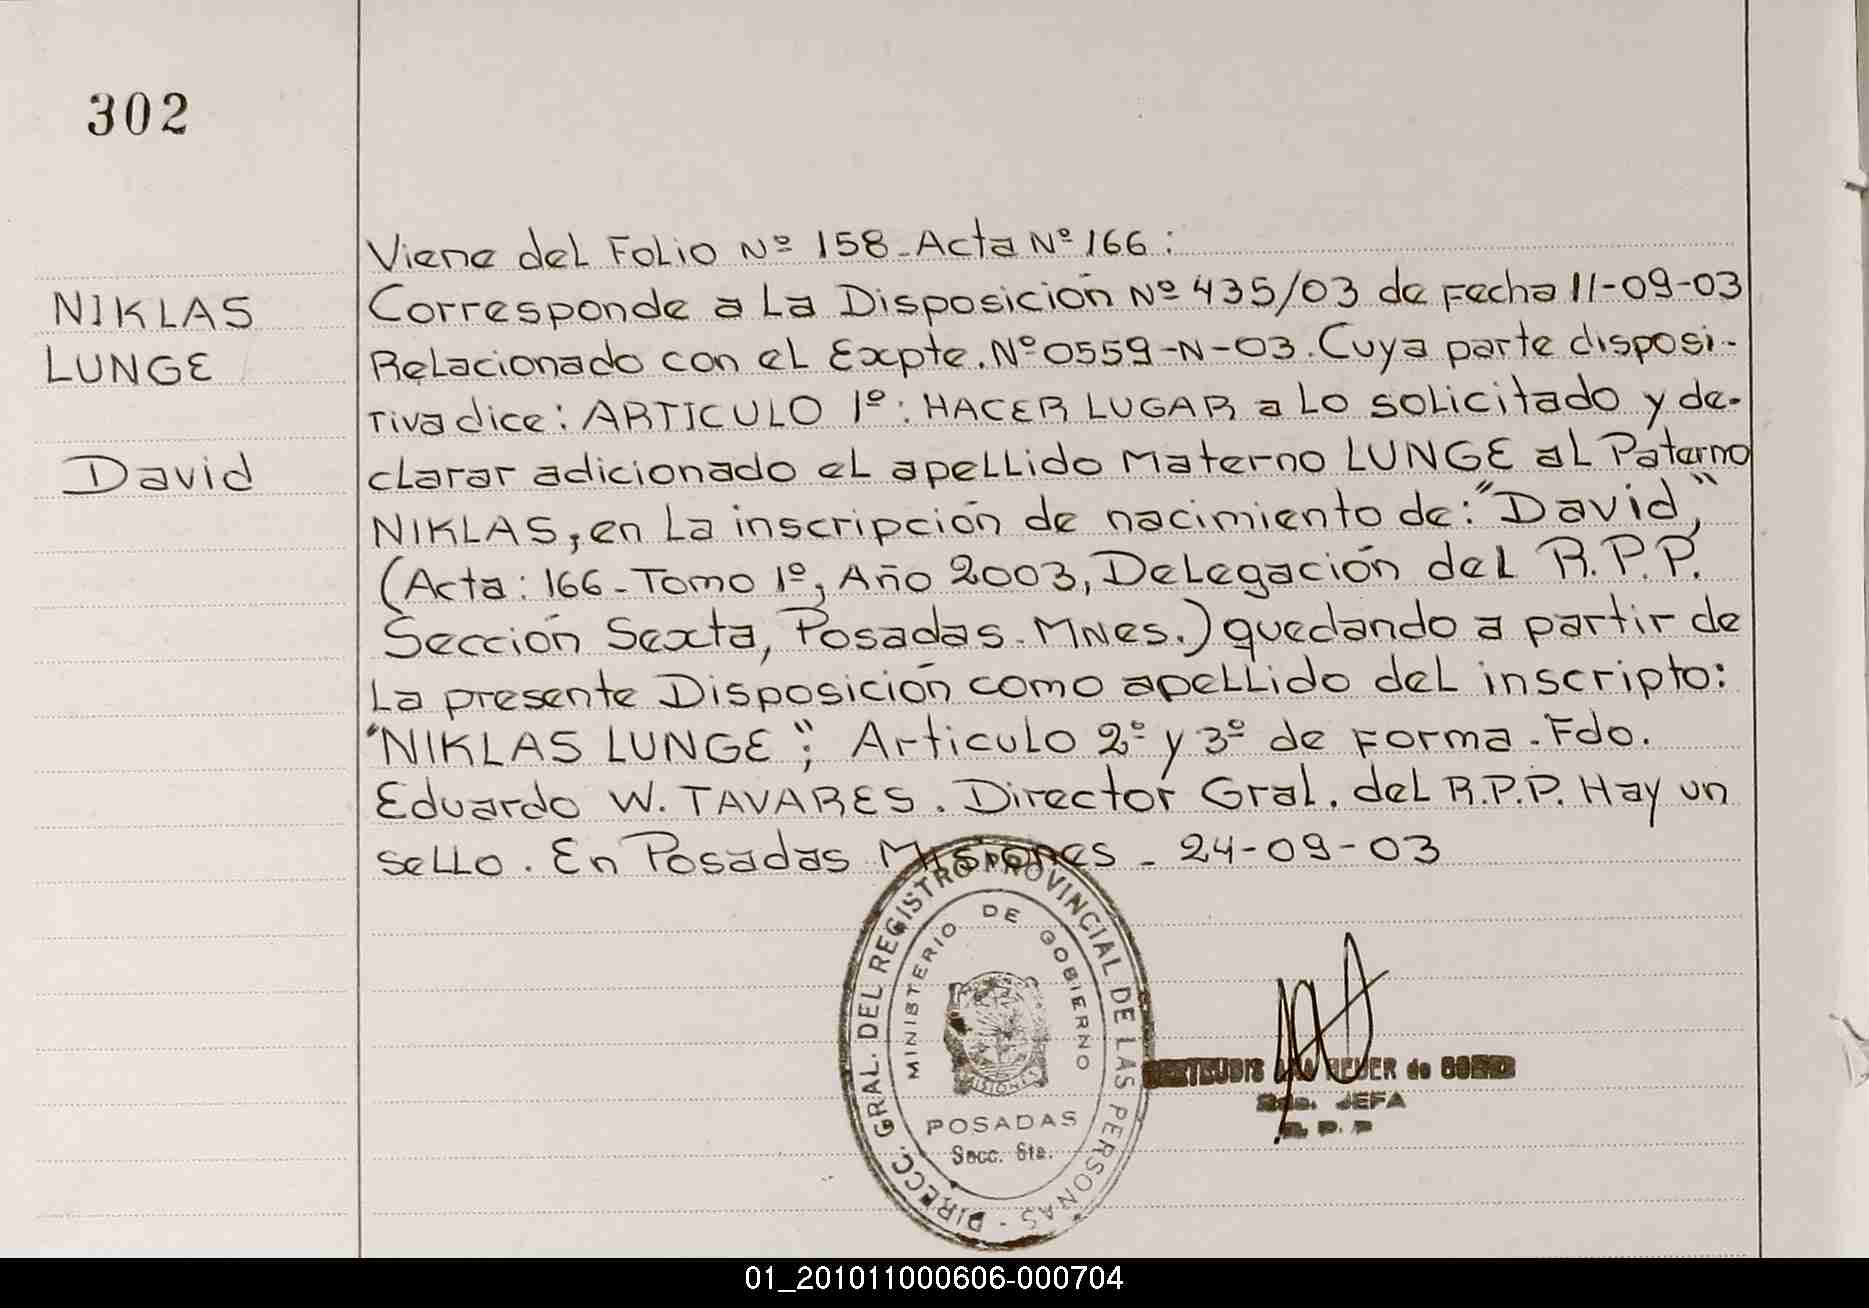 302
NIKLAS
LUNGE
David
Viene del Folio Nº 158-Acta Nº 166:
Corresponde a La Disposición Nº 435/03 de Fecha 11-09-03
Relacionado con el Expte. Nº 0559-N-03. Cuya parte disposi-
tiva dice: ARTICULO 1º: HACER LUGAR a Lo solicitado y de-
clarar adicionado el apellido Materno LUNGE al Paterno
NIKLAS, en La inscripción de nacimiento de: "David",
(Acta: 166-Tomo 1º, Año 2003, Delegación del R.P.P.
Sección Sexta, Posadas-Mnes.) quedando a partir de
La presente Disposición como apellido del inscripto:
"NIKLAS LUNGE"; Articulo 2º y 3º de Forma. Fdo.
Eduardo W. TAVARES. Director Gral. del R.P.P. Hay un
sello. En Posadas Misiones - 24-09-03
DIRECC. GRAL. DEL REGISTRO PROVINCIAL DE LAS PERSONAS -
MINISTERIO DE GOBIERNO
MISIONES
POSADAS
Secc. 6ta.
de
JEFA
R. P. P
01_201011000606-000704